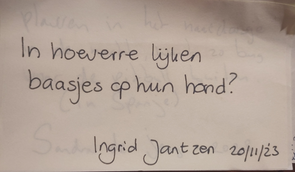 In hoeverre lijken
baasjes op hun hond?
Ingrid Jantzen 20/11/23